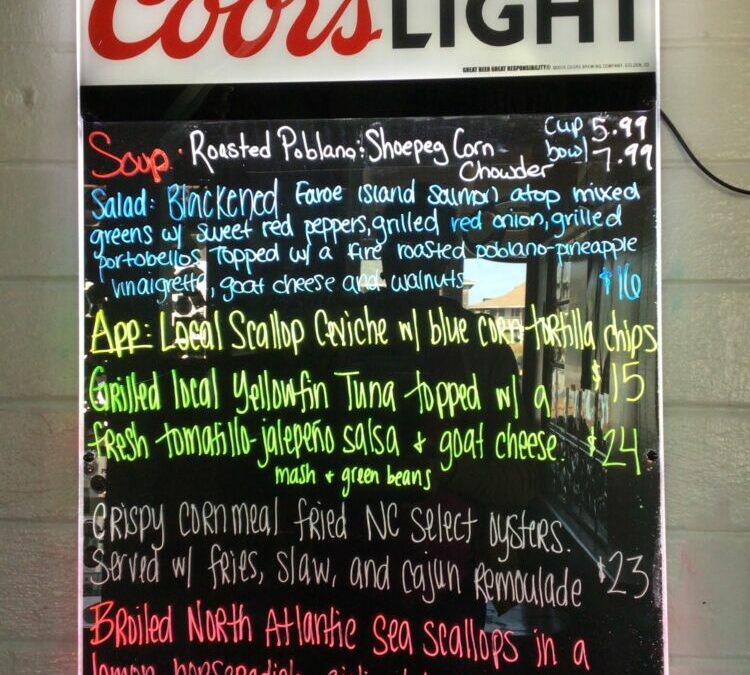 Coors LIGHT
GREAT BEER GREAT RESPONSIBILITY®
Soup: Roasted Poblano: Shoepeg Corn Chowder
cup 5.99
bowl 7.99
Salad: Blackened Faroe Island Salmon atop mixed
greens w/ sweet red peppers, grilled red onion, grilled
portobellos Topped w/ a fire roasted poblano-pineapple
vinaigrette, goat cheese and walnuts $16
App: Local Scallop Ceviche w/ blue corn tortilla chips
$15
Grilled local Yellowfin Tuna topped w/ a
fresh tomatillo-jalepeño salsa + goat cheese. $24
mash + green beans
Crispy cornmeal fried NC Select oysters.
Served w/ fries, slaw, and cajun Remoulade $23
Broiled North Atlantic Sea Scallops in a